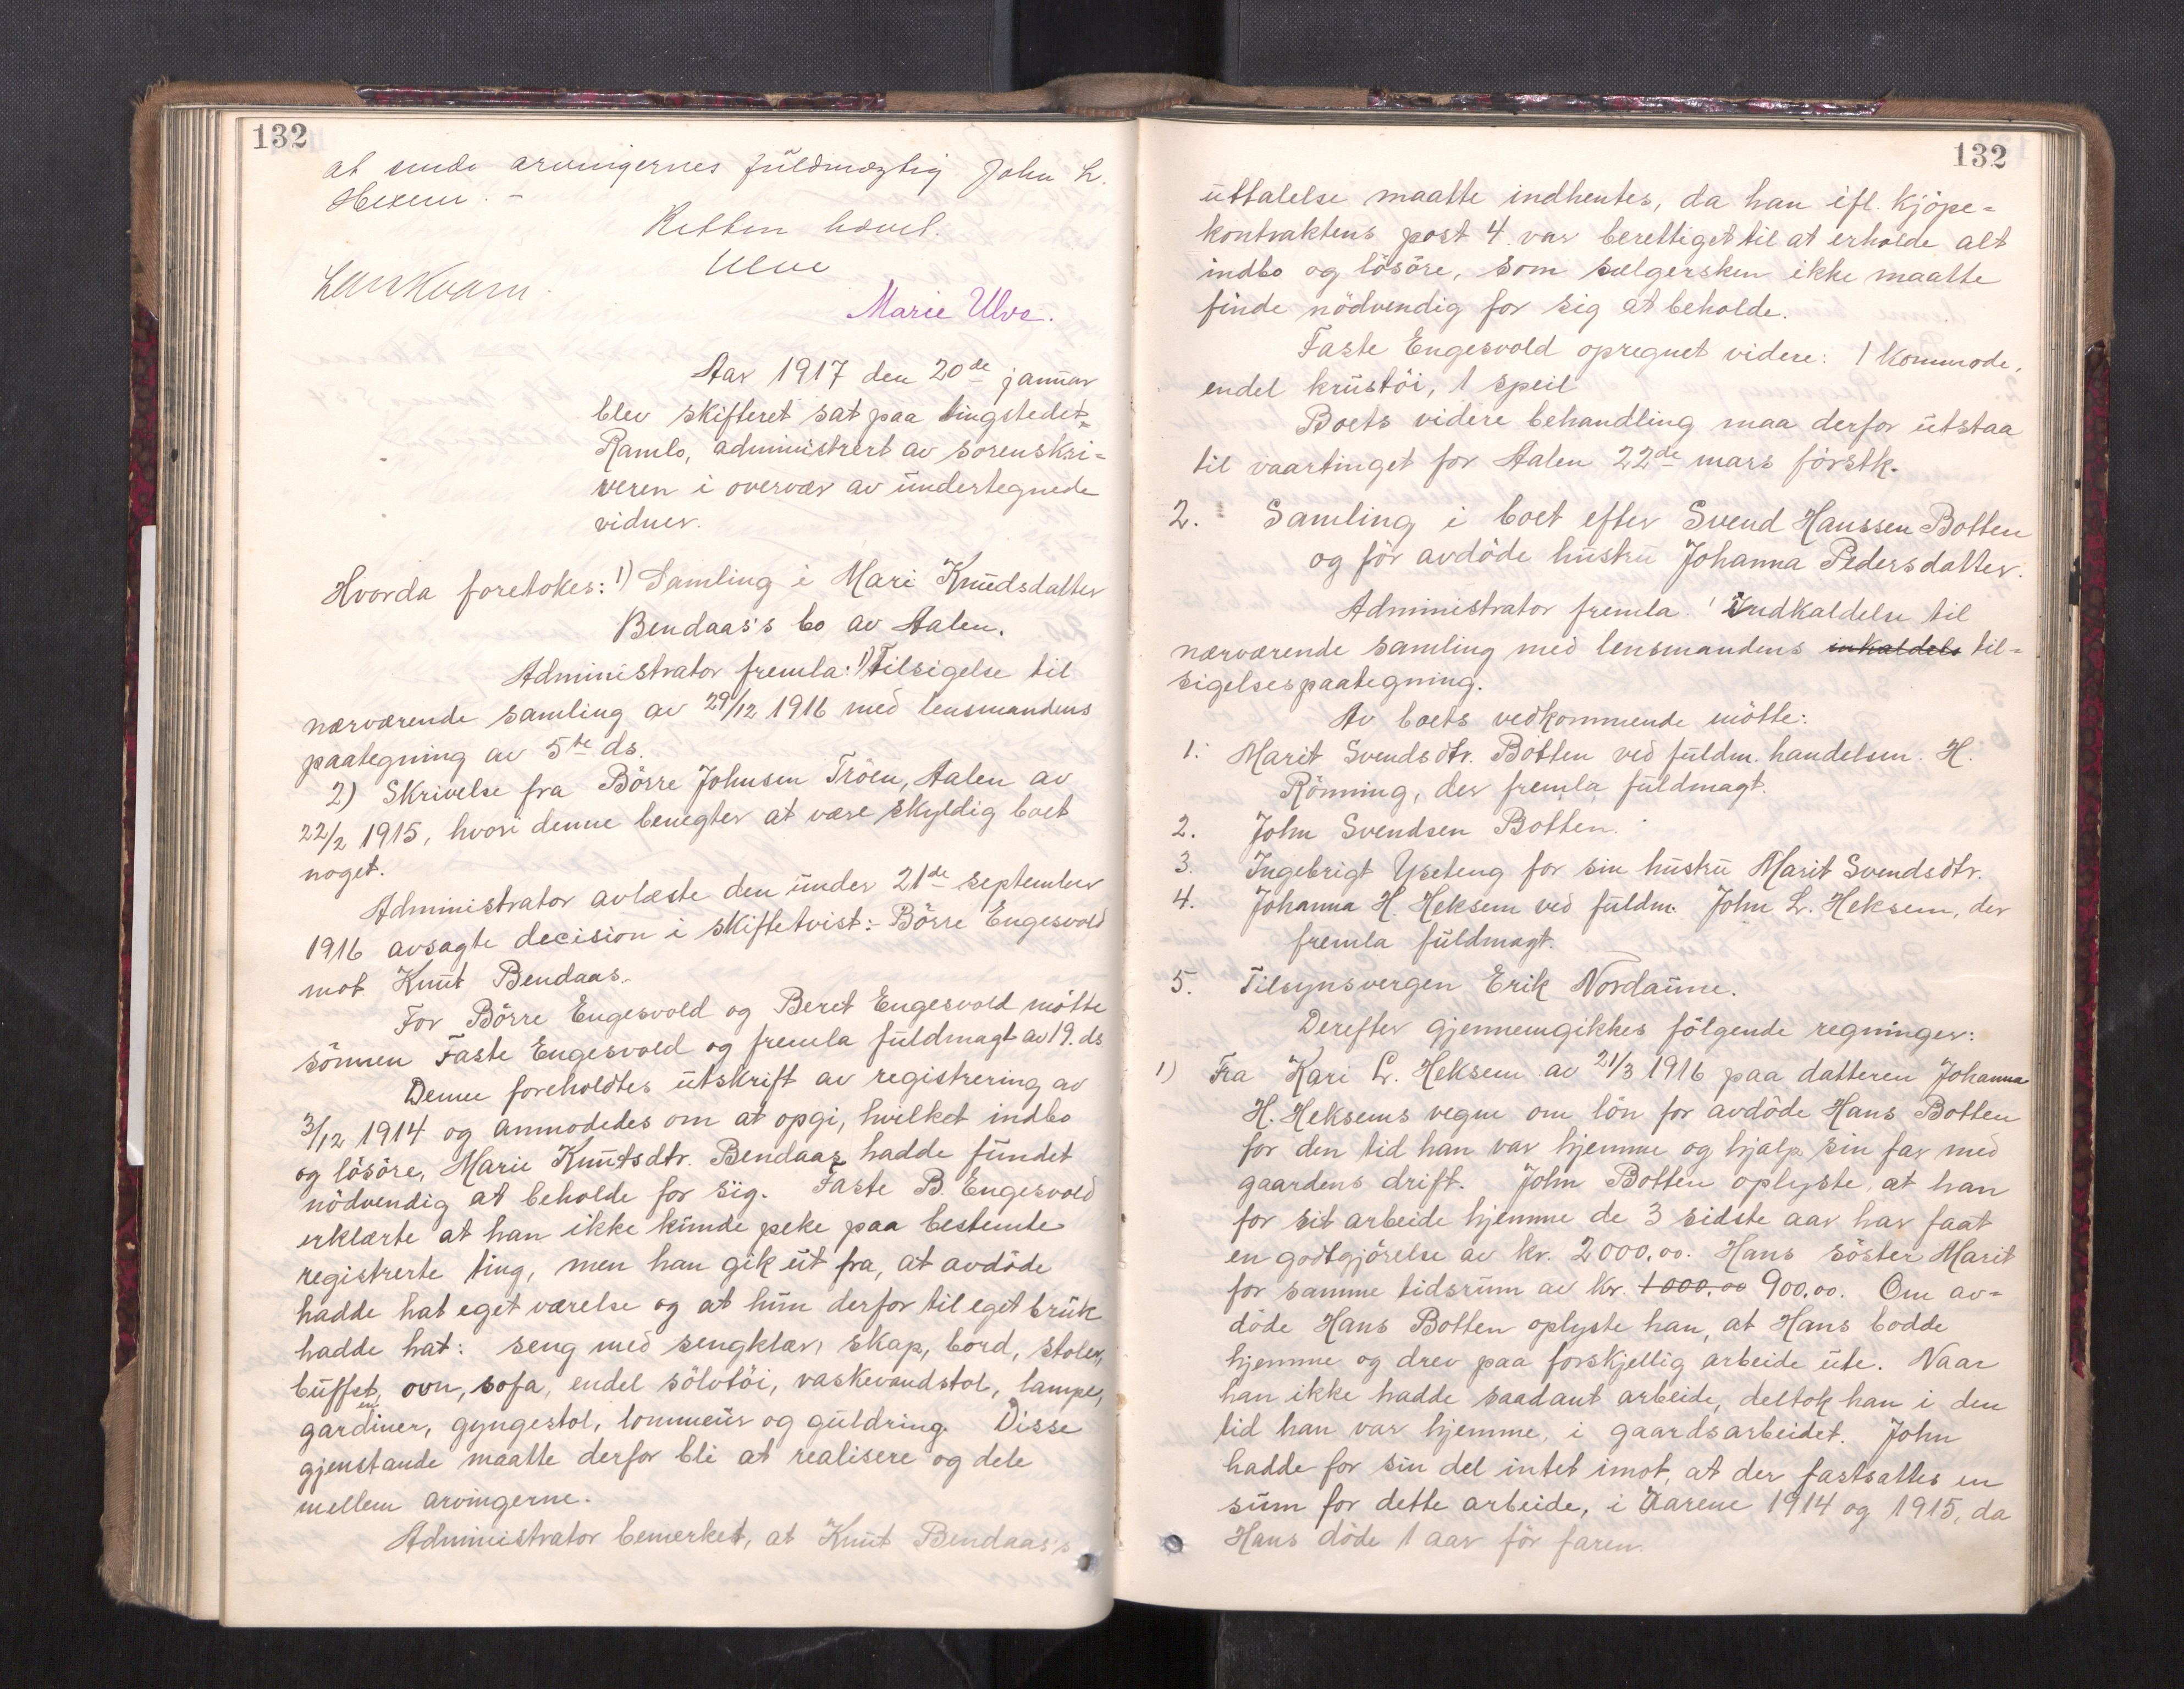 132
at sende arvingernes fuldmægtig John L.
Hexem. -
Retten hævet.
Ulve
Marie Ulve.
Aar 1917 den 20de januar
blev skifteret sat paa tingstedet
Ramlo, administrert av sorenskri=
veren i overvær av undertegnede
vidner.
Hvorda foretokes: 1) Samling i Mari Knudsdatter
Bendaas's bo av Aalen.
Administrator fremla: 1) Tilsigelse til
nærværende samling av 29/12 1916 med lensmandens
paategning av 5te ds.
2) Skrivelse fra Börre Johnsen Tröen, Aalen av
22/2 1915, hvori denne benegter at være skyldig boet
noget.
Administrator avlæste den under 21de september
1916 avsagte decision i skiftetvist: Börre Engesvold
mot Knut Bendaas.
For Börre Engesvold og Beret Engesvold mötte
sönnen Faste Engesvold og fremla fuldmagt av 19. ds
Denne foreholdtes utskrift av registrering av
3/12 1914 og anmodedes om at opgi, hvilket indbo
og lösöre, Marie Knutsdtr. Bendaas hadde fundet
nödvendig at beholde for sig. Faste B. Engesvold
erklærte at han ikke kunde peke paa bestemte
registrerte ting, men han gik ut fra, at avdöde
hadde hat eget værelse og at hun derfor til eget bruk
hadde hat: seng med sengklær, skap, bord, stoler,
buffet, ovn, sofa, endel sölvtöi, vaskevandstol, lampe,
gardiner, en gyngestol, lommeur og guldring. Disse
gjenstande maatte derfor bli at realisere og dele
mellem arvingerne.
Administrator bemerket, at Knut Bendaas's
132
uttalelse maatte indhentes, da han ifl. kjöpe=
kontraktens post 4. var berettiget til at erholde alt
indbo og lösöre, som sælgersken ikke maatte
finde nödvendig for sig at beholde.
Faste Engesvold opregnet videre: 1 kommode,
endel krustöi, 1 speil
Boets videre behandling maa derfor utstaa
til vaartinget for Aalen 22de mars förstk.
2. Samling i boet efter Svend Hanssen Botten
og för avdöde hustru Johanna Pedersdatter.
Administrator fremla: Indkaldelse til
nærværende samling med lensmandens inkaldels til=
sigelsespaategning.
Av boets vedkommende mötte:
1. Marit Svendsdtr. Botten ved fuldm. handelsm. H.
Rönning, der fremla fuldmagt.
2. John Svendsen Botten.
3. Ingebrigt Yseteng for sin hustru Marit Svendsdtr.
4. Johanna H. Heksem ved fuldm. John L. Heksem, der
fremla fuldmagt.
5. Tilsynsvergen Erik Nordaune.
Derefter gjennemgikkes fölgende regninger:
1) Fra Kari L. Heksem av 21/3 1916 paa datteren Johanna
H. Heksems vegne om lön for avdöde Hans Botten
for den tid han var hjemme og hjalp sin far med
gaardens drift. John Botten oplyste, at han
for sit arbeide hjemme de 3 sidste aar har faat
en godtgjörelse av kr. 2000.00. Hans söster Marit
for samme tidsrum av kr. 1000,00 900.00. Om av=
döde Hans Botten oplyste han, at Hans bodde
hjemme og drev paa forskjellig arbeide ute. Naar
han ikke hadde saadant arbeide, deltok han i den
tid han var hjemme, i gaardsarbeidet. John
hadde for sin del intet imot, at der fastsattes en
sum for dette arbeide, i aarene 1914 og 1915, da
Hans döde 1 aar för faren.